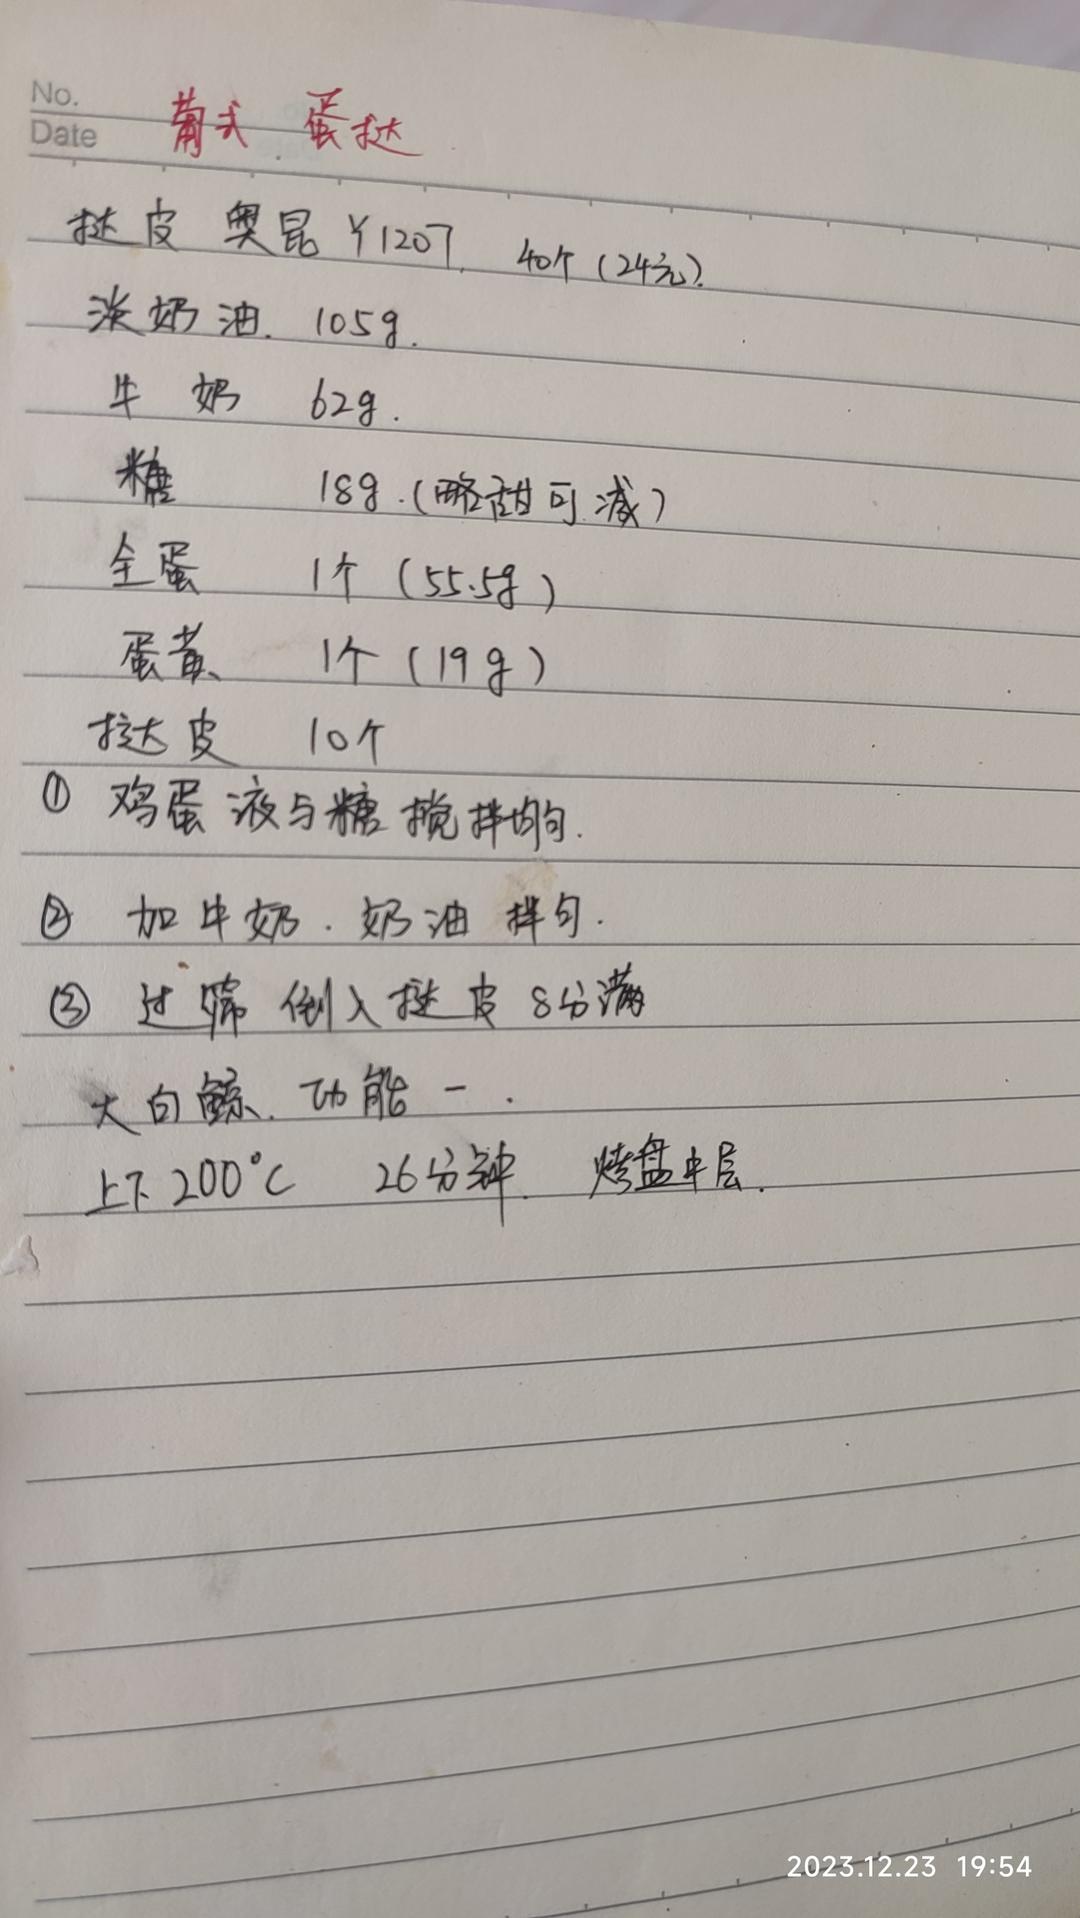 No.
Date
葡式 蛋挞
挞皮 奥昆 Y1207. 40个(24元).
淡奶油. 105g.
牛奶 62g.
糖 18g.(略甜可减)
全蛋 1个(55.5g)
蛋黄 1个(19g)
挞皮 10个
① 鸡蛋液与糖搅拌均匀.
② 加牛奶.奶油 拌匀.
③ 过筛 倒入挞皮 8分满
大白鲸.功能一.
上下200℃ 26分钟. 烤盘中层.
2023.12.23 19:54